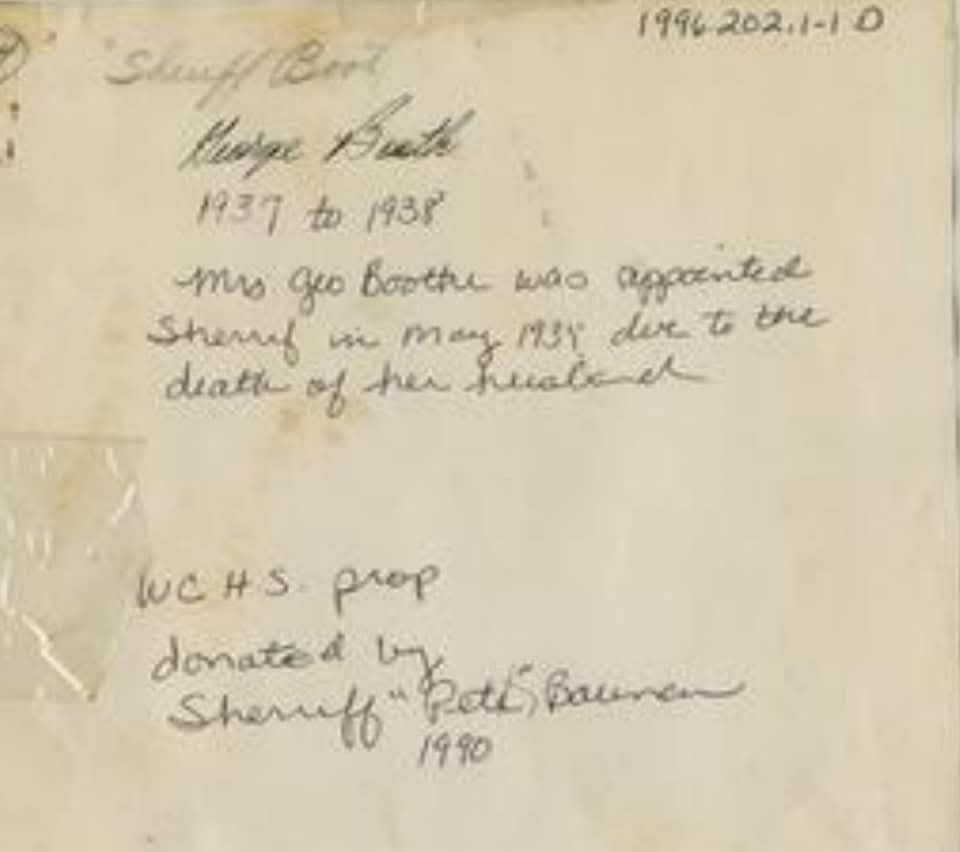 1996.202.1-1 D
"Sheriff Boot
George Booth
1937 to 1938
Mrs Geo Boothe was appointed
Sherrif in May due to the
death of her husband
WCHS. prop
donated by
Sherriff "Pete" Bauman
1990